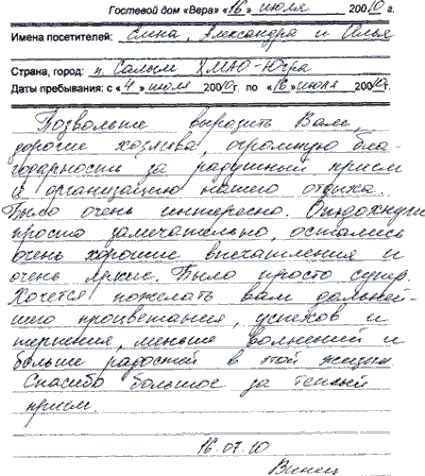 Гостевой дом «Вера» «16» июля 20010 г.
Имена посетителей: Елена, Александра и Илья
Страна, город: п. Салым ХМАО-Югра
Даты пребывания: с «4» июля 20010г. по «16» июля 20010г.
Позвольте выразить Вам,
дорогие хозяева, огромную бла-
годарность за радушный прием
и организацию нашего отдыха.
Было очень интересно. Отдохнули
просто замечательно, остались
очень хорошие впечатления и
очень яркие. Было просто супер.
Хочется пожелать вам дальней-
шего процветания, успехов и
терпения, меньше волнений и
больше радостей в этой жизни
Спасибо большое за теплый
прием.
16.07.10